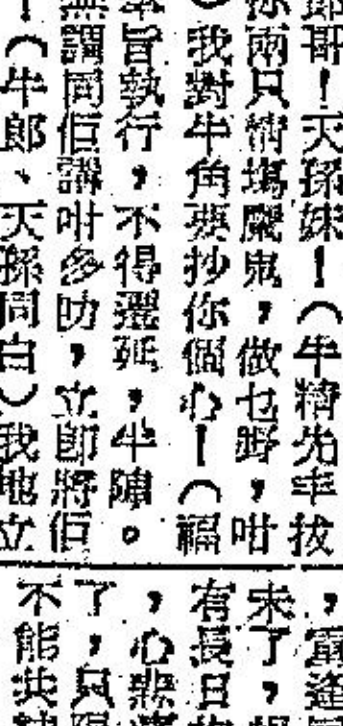 郎哥！天孫妹！（牛精先率拔
你兩只情塲魔鬼，做乜野，咁
）我對牛角要抄你個心！（福
旨執行，不得遲延，牛障。
無謂同佢講咁多叻，立即將佢
！（牛郎、天孫同白）我地立
，富逢
未了，
有長日
，心悲
了，只
不能共